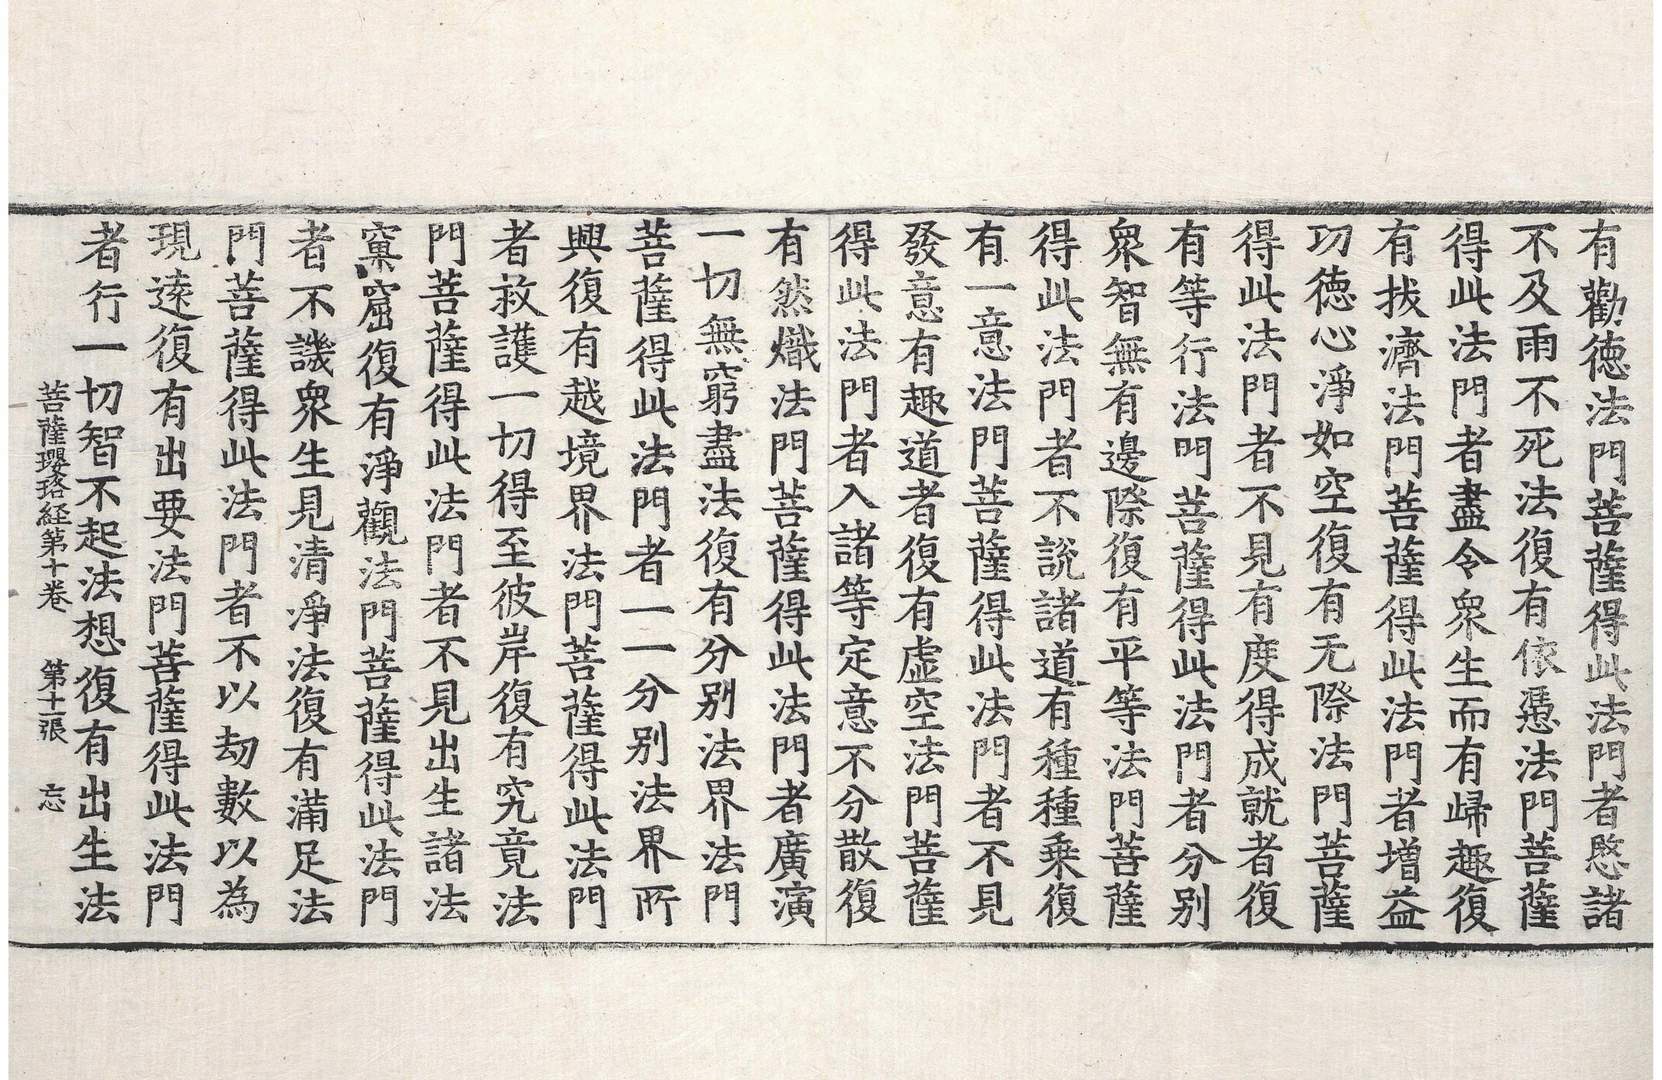 有勸徳法門菩薩得此法門者愍諸
不及雨不死法復有依憑法門菩薩
得此法門者盡令衆生而有歸趣復
有拔濟法門菩薩得此法門者增益
功徳心淨如空復有无際法門菩薩
得此法門者不見有度得成就者復
有等行法門菩薩得此法門者分别
衆智無有邊際復有平等法門菩薩
得此法門者不說諸道有種種乗復
有一意法門菩薩得此法門者不見
發意有趣道者復有虛空法門菩薩
得此法門者入諸等定意不分散復
有然熾法門菩薩得此法門者廣演
一切無窮盡法復有分别法界法門
菩薩得此法門者一一分别法界所
興復有越境界法門菩薩得此法門
者救護一切得至彼岸復有究竟法
門菩薩得此法門者不見出生諸法
窠窟復有淨觀法門菩薩得此法門
者不譏衆生見清淨法復有滿足法
門菩薩得此法門者不以劫數以為
現逺復有出要法門菩薩得此法門
者行一切智不起法想復有出生法
菩薩瓔珞経第十卷 第十二張 忘